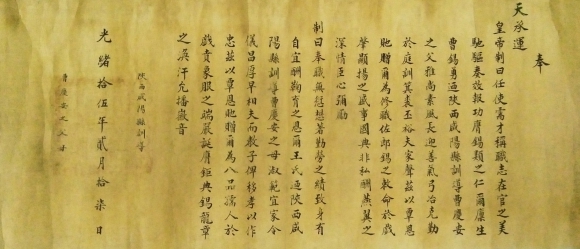 奉
天承運
皇帝制曰任使需才稱職志在官之美
馳驅奏效報功膺錫類之仁爾廩生
曹錫勇迺陝西咸陽縣訓導曹慶安
之父推尚素風長迎善氣弓冶克勤
於庭訓箕裘丕裕夫家聲茲以覃恩
馳贈爾為修職佐郎錫之敕命於戲
肇顯揚之盛事國典非私酬燕翼之
深情臣心彌勵
制曰奉職無愆懋著勤勞之績致身有
自宜酬鞠育之恩爾王氏迺陝西咸
陽縣訓導曹慶安之母淑範宜家令
儀昌後早相夫而教子俾移孝以作
忠茲以覃恩馳贈爾為八品孺人於
戲賁象服之端嚴誕膺鉅典錫龍章
之渙汗允播徽音
陝西咸陽縣訓導
曹慶安之父母
光緒拾伍年貳月拾柒日